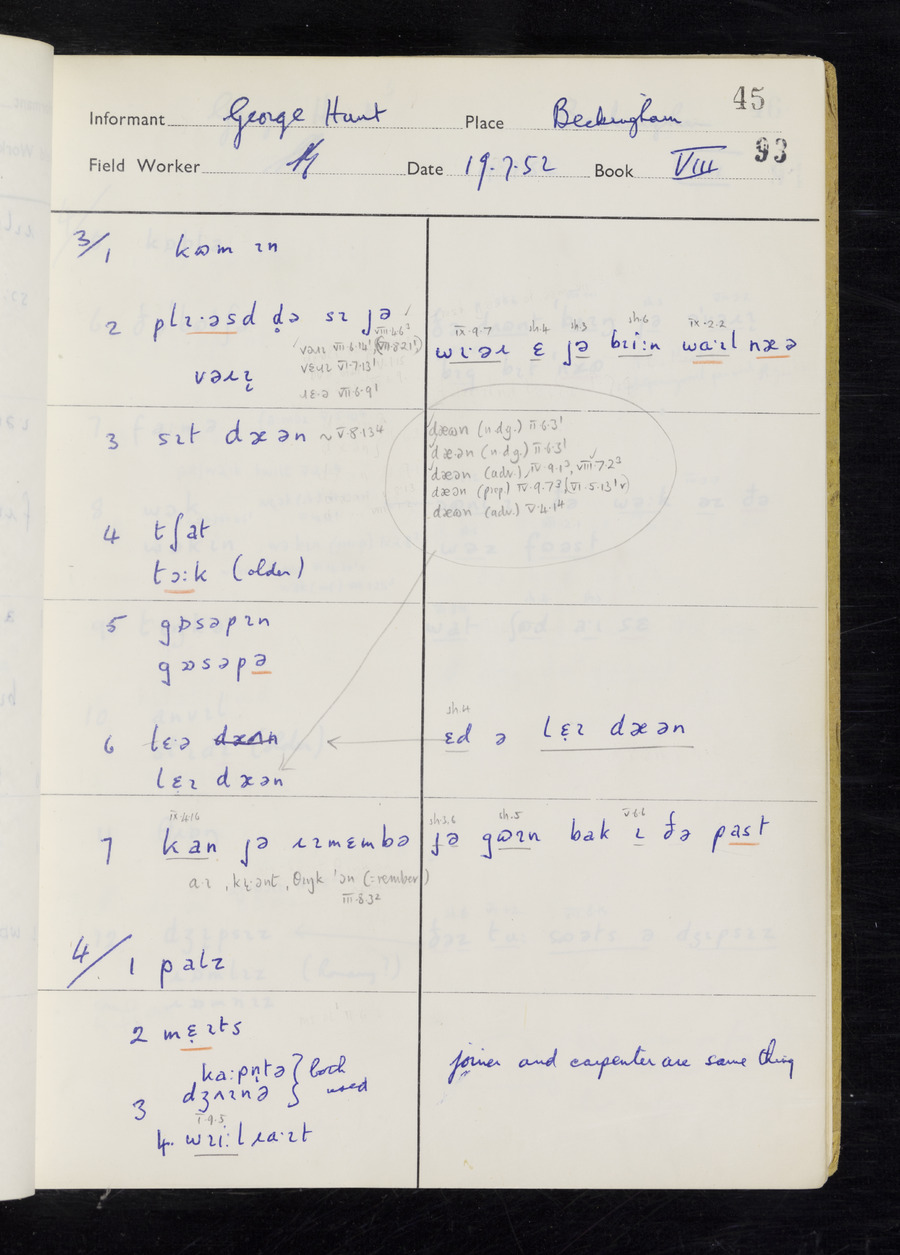 45
Informant George Hunt Place Beckingham
93
Field Worker Date 19.7.52 Book VIII
3/1 kɷm ɪn
2 plɪ·əsd d̥ə sɪ jə
VIII.4.6²
vəɹɪ VII.6.14¹ (VII.8.21¹)
vɛɹɪ VI.7.13¹
vəɹɪ̞
ɪɛ·ə VII.6.9¹
IX.9.7 sh.4 sh.3 sh.6 IX.2.2
wɪ·əɹ ɛ jə bɪi:n wa:ɪl næə
3 sɪt dæən ~ V.8.13⁴
dæɷn (n.dg.) II.6.3¹
dæ·ən (n.dg.) II.6.3¹
dæən (adv.) IV.9.1³, VIII.7.2³
dæən (prep.) IV.9.7³ (VI.5.13¹v)
dæɷn (adv.) V.4.1⁴
4 tʃat
tɔ:k (older)
5 gɒsəpɪn
gɒsəpə
6 lɛ·ə
lɛ̞ɪ dæən
sh.4
ɛd ə lɛ̞ɪ dæən
IX.4.16
7 kan jə ɹɪmɛmbə
sh.3.6 sh.5 V.6.6
jə gɷɪn bak ɪ ðə past
a·ɪ, kɪ·ənt, θɪŋk ʼən (=rember)
III.8.3²
4/1 palz
2 mɛ̞ɪts
ka:pn̩tə } both
dʒʌɪnə } used
3
joiner and carpenter are same thing
I.9.5
4. wɪi:lɹa:ɪt